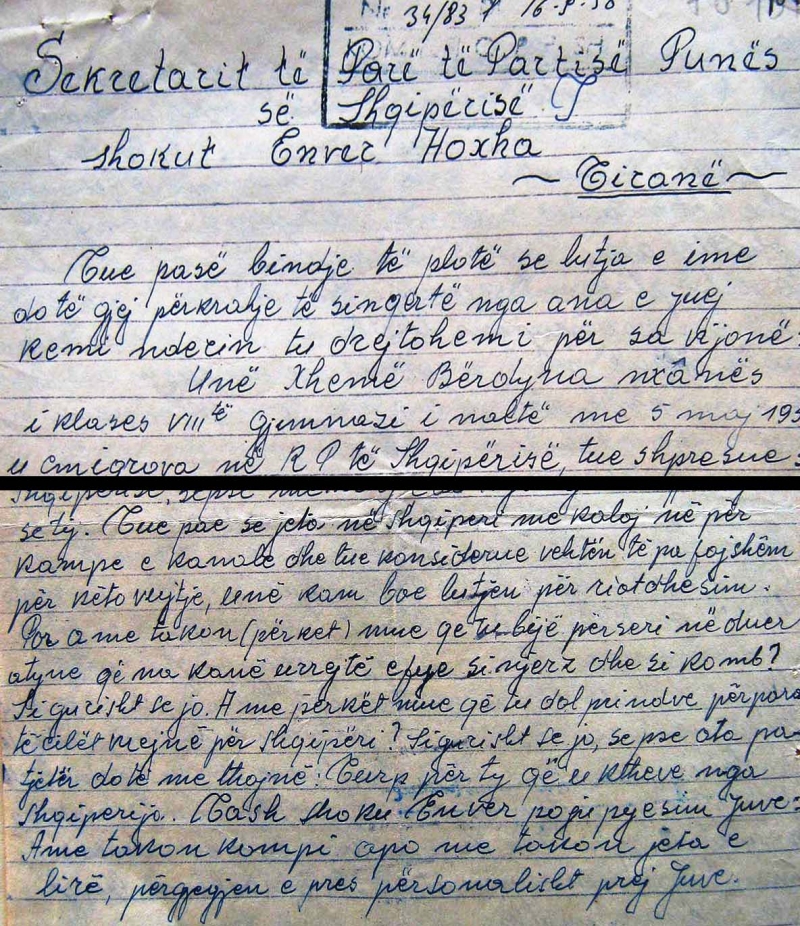 34/83 16-8-58
Sekretarit të Parë të Partisë Punës
së Shqipërisë
shokut Enver Hoxha
~ Tiranë ~
Tue pasë bindje të plotë se lutja e ime
do të gjej përkrahje të singertë nga ana e juej
kemi nderin tu drejtohemi për sa vijonë:
Unë Xhemë Bërdyna nxânës
i klases VIII të gjimnazi i naltë me 5 maj 195
u emigrova në R P të Shqipërisë, tue shpresue
Shqipërisë, sepse
se ty. Tue pae se jeta në Shqiperi me kaloj në për
kampe e kanale dhe tue konsiderue vehtën të pa fajshëm
për këto vuejtje, unë kam bae lutjen për riatdhesim.
Por a me takon (përket) mue qe tu bijë përseri në duer
atyne që na kanë urrejtë si njerz dhe si komb?
Sigurisht se jo. A me përkët mue që tu dal prindve përpara
të cilët vuejnë për Shqipëri? Sigurisht se jo, sepse ata pa-
tjetër do të me thojnë: Turp për ty që u ktheve nga
Shqiperija. Tash shoku Enver po ju pyesim Juve:
A me takon kampi apo me takon jeta e
lirë, përgjegjen e pres përsonalisht prej Juve.